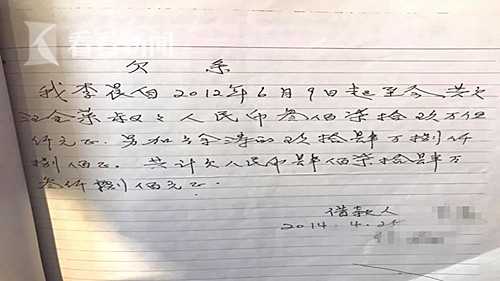 看看新闻
欠 条
我李晨自2012年6月9日起至今,共欠
汪全荣叔叔人民币叁佰柒拾玖万伍
仟元正.另加余涛的玖拾肆万捌仟
捌佰正.共计欠人民币肆佰柒拾肆万
叁仟捌佰元正.
借款人
2014.4.